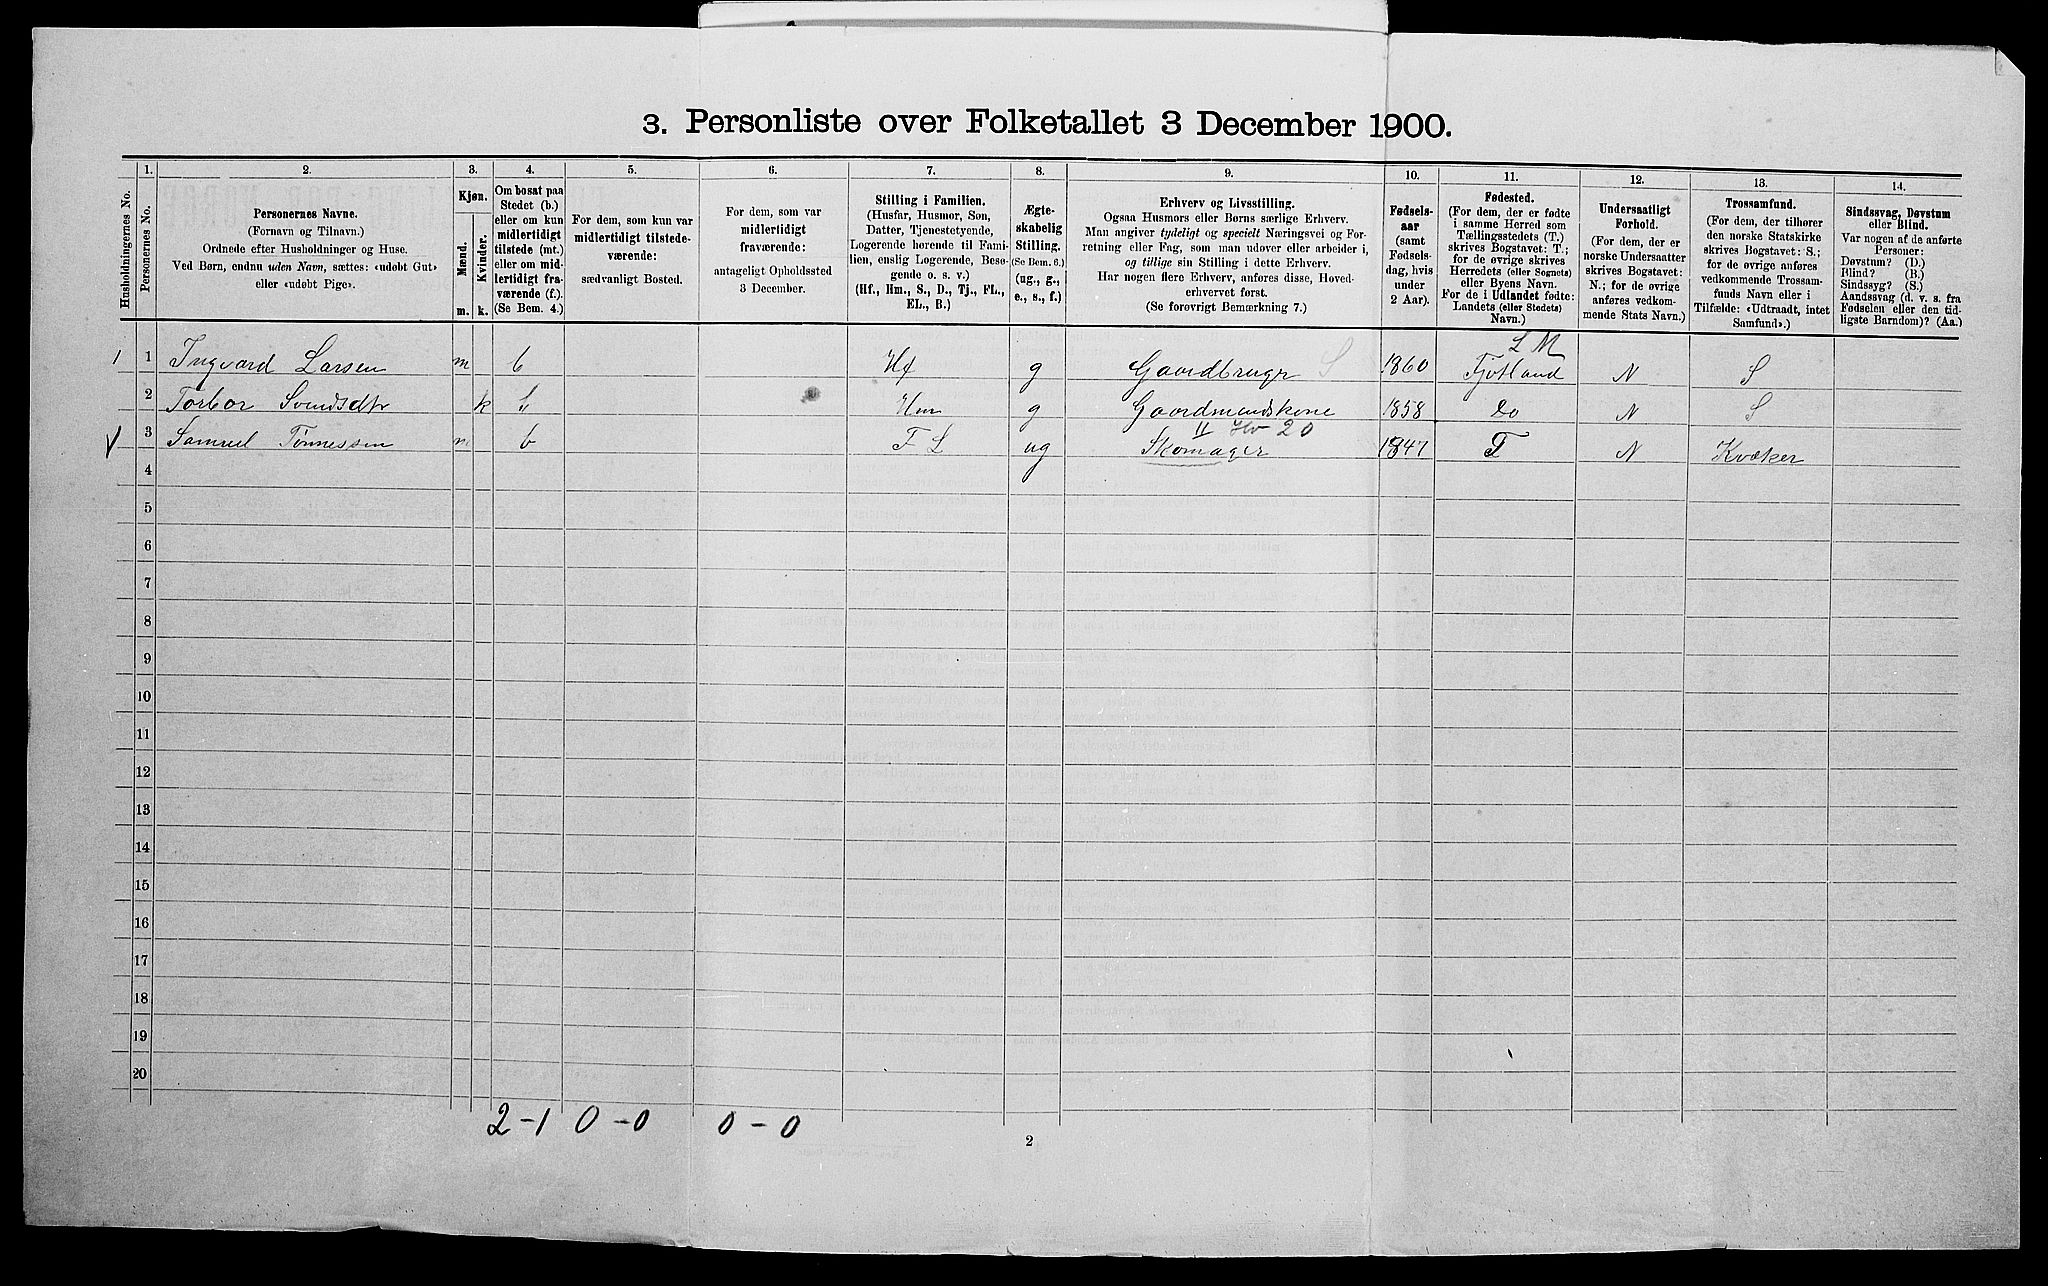 3. Personliste over Folketallet 3 December 1900.
Husholdningernes No.
1.
Personernes No.
2.
Personernes Navne.
(Fornavn og Tilnavn.)
Ordnede efter Husholdninger og Huse.
Ved Børn, endnu uden Navn, sættes: «udøbt Gut»
eller «udøbt Pige».
3.
Kjøn.
Mænd.
Kvinder.
m.
k.
4.
Om bosat paa
Stedet (b.)
eller om kun
midlertidigt
tilstede (mt.)
eller om mid-
lertidigt fra-
værende (f.).
(Se Bem. 4.)
5.
For dem, som kun var
midlertidigt tilstede-
værende:
sædvanligt Bosted.
6.
For dem, som var
midlertidigt
fraværende:
antageligt Opholdssted
3 December.
7.
Stilling i Familien.
(Husfar, Husmor, Søn,
Datter, Tjenestetyende,
Logerende hørende til Fami-
lien, enslig Logerende, Besø-
gende o. s. v.)
(Hf., Hm., S., D., Tj., FL.,
EL., B.)
8.
Ægte-
skabelig
Stilling.
(Se Bem. 6.)
(ug., g.,
e., s., f.)
9.
Erhverv og Livsstilling.
Ogsaa Husmors eller Børns særlige Erhverv.
Man angiver tydeligt og specielt Næringsvei og For-
retning eller Fag, som man udøver eller arbeider i,
og tillige sin Stilling i dette Erhverv.
Har nogen flere Erhverv, anføres disse, Hoved-
erhvervet først.
(Se forøvrigt Bemærkning 7.)
10.
Fødsels-
aar
(samt
Fødsels-
dag, hvis
under
2 Aar).
11.
Fødested.
(For dem, der er fødte
i samme Herred som
Tællingsstedets (T.)
skrives Bogstavet: T.;
for de øvrige skrives
Herredets (eller Sognets)
eller Byens Navn.
For de i Udlandet fødte:
Landets (eller Stedets)
Navn.)
12.
Undersaatligt
Forhold.
(For dem, der er
norske Undersaatter
skrives Bogstavet:
N.; for de øvrige
anføres vedkom-
mende Stats Navn.)
13.
Trossamfund.
(For dem, der tilhører
den norske Statskirke
skrives Bogstavet: S.;
for de øvrige anføres
vedkommende Trossam-
funds Navn eller i
Tilfælde: «Udtraadt, intet
Samfund».)
14.
Sindssvag, Døvstum
eller Blind.
Var nogen af de anførte
Personer:
Døvstum? (D.)
Blind? (B.)
Sindssyg? (S.)
Aandssvag (d. v. s. fra
Fødselen eller den tid-
ligste Barndom)? (Aa.)
L M
1 1 Ingvard Larsen m b Hf g Gaardbruger S 1860 Fjotland N S
2 Torbor Svendsdtr k b Hm g Gaardmandskone 1858 Do N S
II Hv 20
3 Samuel Tønnessen m b F L ug Skomager 1847 T N Kvæker
4
5
6
7
8
9
10
11
12
13
14
15
16
17
18
19
20
2-1 0-0 0-0
2